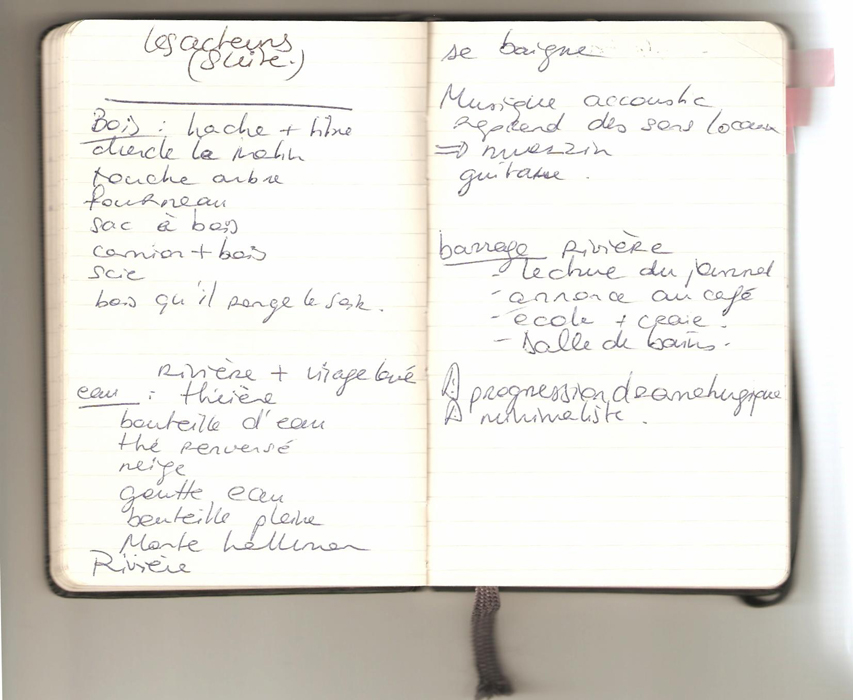 les acteurs
(suite.)
Bois : hache + 
cherche le matin
touche arbre
fourneau
sac à bois
camion + bois
scie
bois qu'il range le soir.
Rivière + visage lavé
eau : théière
bouteille d'eau
thé renversé
neige
goutte eau
bouteille pleine
Monte 
Rivière
se baigne
Musique accoustic
reprend des sons locaux
⇒ muezzin
guitare.
barrage Rivière
- lecture du journal
- annonce au café
- école + craie.
- Salle de bains.
progression dramaturgique
minimaliste.